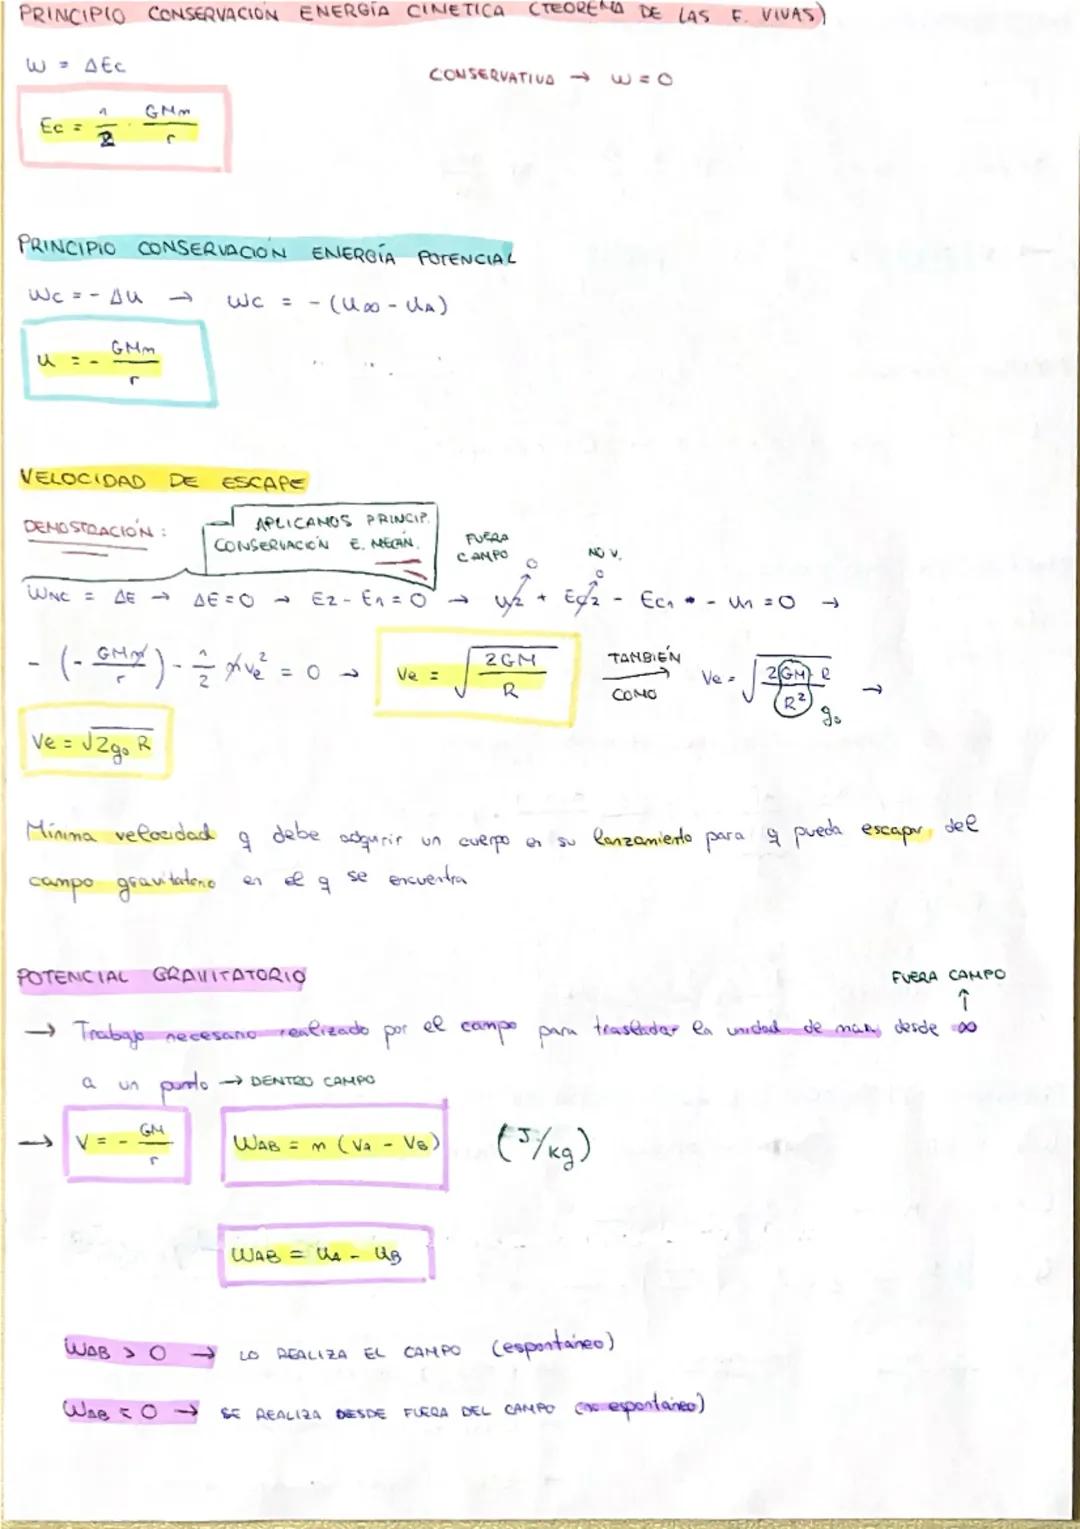 PRINCIPIO CONSERVACIÓN ENERGÍA CINETICA (TEOREMA DE LAS F. VIVAS)
W = ΔEc
CONSERVATIVA → W = 0
Ec = 1/2 · GMm/r
PRINCIPIO CONSERVACIÓN ENERGÍA POTENCIAL
Wc = - ΔU → Wc = - (U∞ - UA)
U = - GMm/r
VELOCIDAD DE ESCAPE
DEMOSTRACIÓN:
APLICAMOS PRINCIP.
CONSERVACIÓN E. MECÁN.
FUERA CAMPO
0
NO V.
0
WNC = ΔE → ΔE = 0 → E2 - E1 = 0 → U2 + Ec2 - Ec1 - U1 = 0 →
- (- GMm/r) - 1/2 m ve² = 0 → Ve = √(2GM/R) TAMBIÉN COMO → Ve = √(2GM R/R²) g₀ →
Ve = √2g₀ R
Mínima velocidad q debe adquirir un cuerpo en su lanzamiento para q pueda escapar del
campo gravitatorio en el q se encuentra
POTENCIAL GRAVITATORIO
FUERA CAMPO
↑
→ Trabajo necesario realizado por el campo para trasladar la unidad de masa desde ∞
a un punto → DENTRO CAMPO
→ V = - GM/r WAB = m (VA - VB) (J/kg)
WAB = UA - UB
WAB > 0 → LO REALIZA EL CAMPO (espontáneo)
WAB < 0 → SE REALIZA DESDE FUERA DEL CAMPO (no espontáneo)